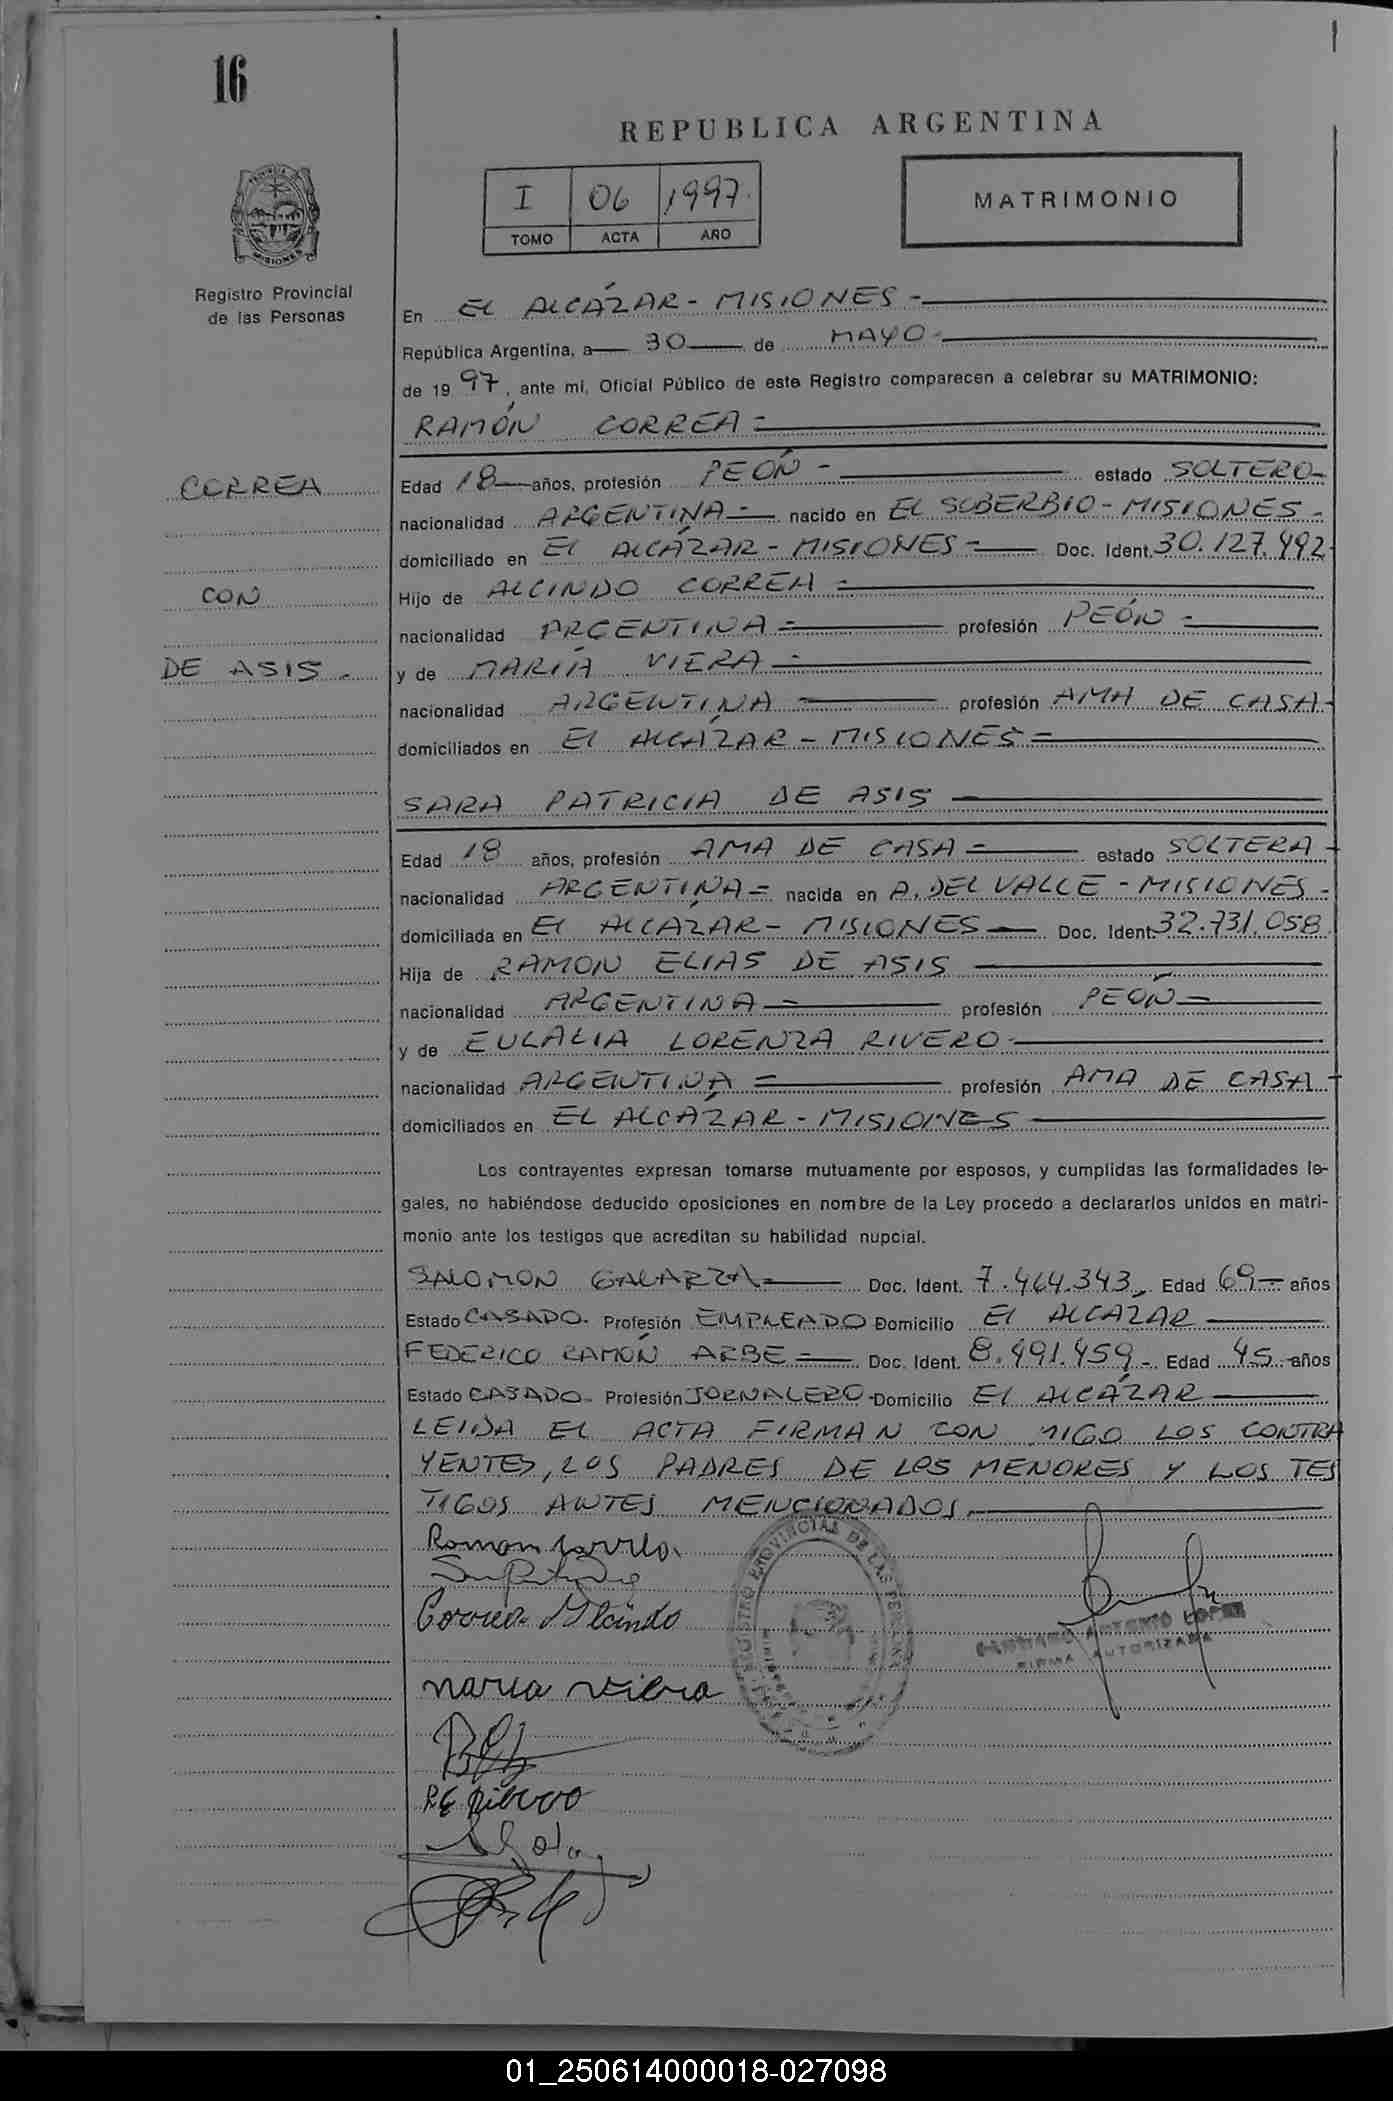 16
REPUBLICA ARGENTINA
I 06 1997.
TOMO ACTA AÑO
MATRIMONIO
PROVINCIA DE
MISIONES
Registro Provincial
de las Personas
En EL ALCÁZAR - MISIONES -
República Argentina, a 30 de MAYO -
de 1997, ante mí, Oficial Público de este Registro comparecen a celebrar su MATRIMONIO:
RAMÓN CORREA =
CORREA
CON
DE ASIS -
Edad 18 años, profesión PEÓN - estado SOLTERO -
nacionalidad ARGENTINA = nacido en EL SOBERBIO - MISIONES -
domiciliado en El ALCÁZAR - MISIONES = Doc. Ident. 30.127.492
Hijo de ALCINDO CORREA =
nacionalidad ARGENTINA = profesión PEÓN =
y de MARÍA VIERA =
nacionalidad ARGENTINA profesión AMA DE CASA -
domiciliados en El ALCÁZAR - MISIONES =
SARA PATRICIA DE ASIS
Edad 18 años, profesión AMA DE CASA = estado SOLTERA -
nacionalidad ARGENTINA = nacida en A. DEL VALLE - MISIONES -
domiciliada en El ALCAZAR - MISIONES Doc. Ident. 32.731.058
Hija de RAMON ELIAS DE ASIS
nacionalidad ARGENTINA = profesión PEÓN =
y de EULALIA LORENZA RIVERO -
nacionalidad ARGENTINA = profesión AMA DE CASA -
domiciliados en EL ALCÁZAR - MISIONES
Los contrayentes expresan tomarse mutuamente por esposos, y cumplidas las formalidades le-
gales, no habiéndose deducido oposiciones en nombre de la Ley procedo a declararlos unidos en matri-
monio ante los testigos que acreditan su habilidad nupcial.
SALOMON GALARZA Doc. Ident. 7.464.343 Edad 69 años
Estado CASADO. Profesión EMPLEADO Domicilio El ALCAZAR
FEDERICO RAMÓN ARBE = Doc. Ident. 8.491.459 - Edad 45 años
Estado CASADO - Profesión JORNALERO - Domicilio El ALCÁZAR
LEIDA EL ACTA FIRMAN CON MIGO LOS CONTRA
YENTES, LOS PADRES DE LOS MENORES Y LOS TES
TIGOS ANTES MENCIONADOS.
Ramon Correa.
Correa Alcindo
REGISTRO PROVINCIAL DE LAS PERSONAS
SANTIAGO ANTONIO LOPEZ
FIRMA AUTORIZADA
maria viera
01_250614000018-027098